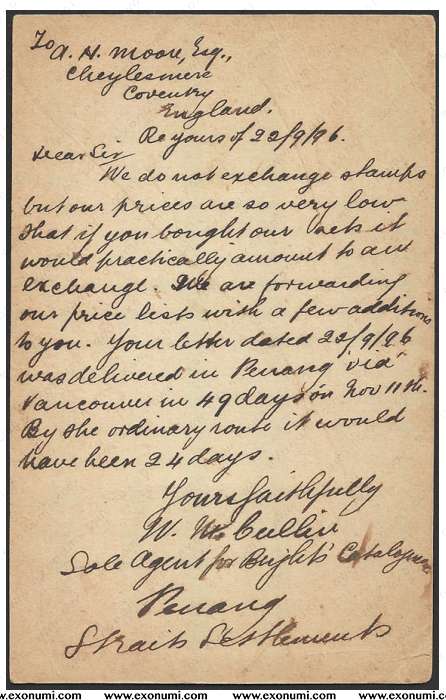 To A. H. Moore, Esq.,
Cheylesmere
Coventry
England.
Re yours of 22/9/96.
Dear Sir
We do not exchange stamps
but our prices are so very low
that if you bought our sets it
would practically amount to an
exchange. We are forwarding
our price lists with a few additions
to you. Your letter dated 22/9/96
was delivered in Penang via
Vancouver in 49 days on Nov 11th.
By the ordinary route it would
have been 24 days.
Yours faithfully
W.
Sole Agent for Bright's Catalogue
Penang
Straits Settlements
www.exonumi.com www.exonumi.com www.exonumi.com